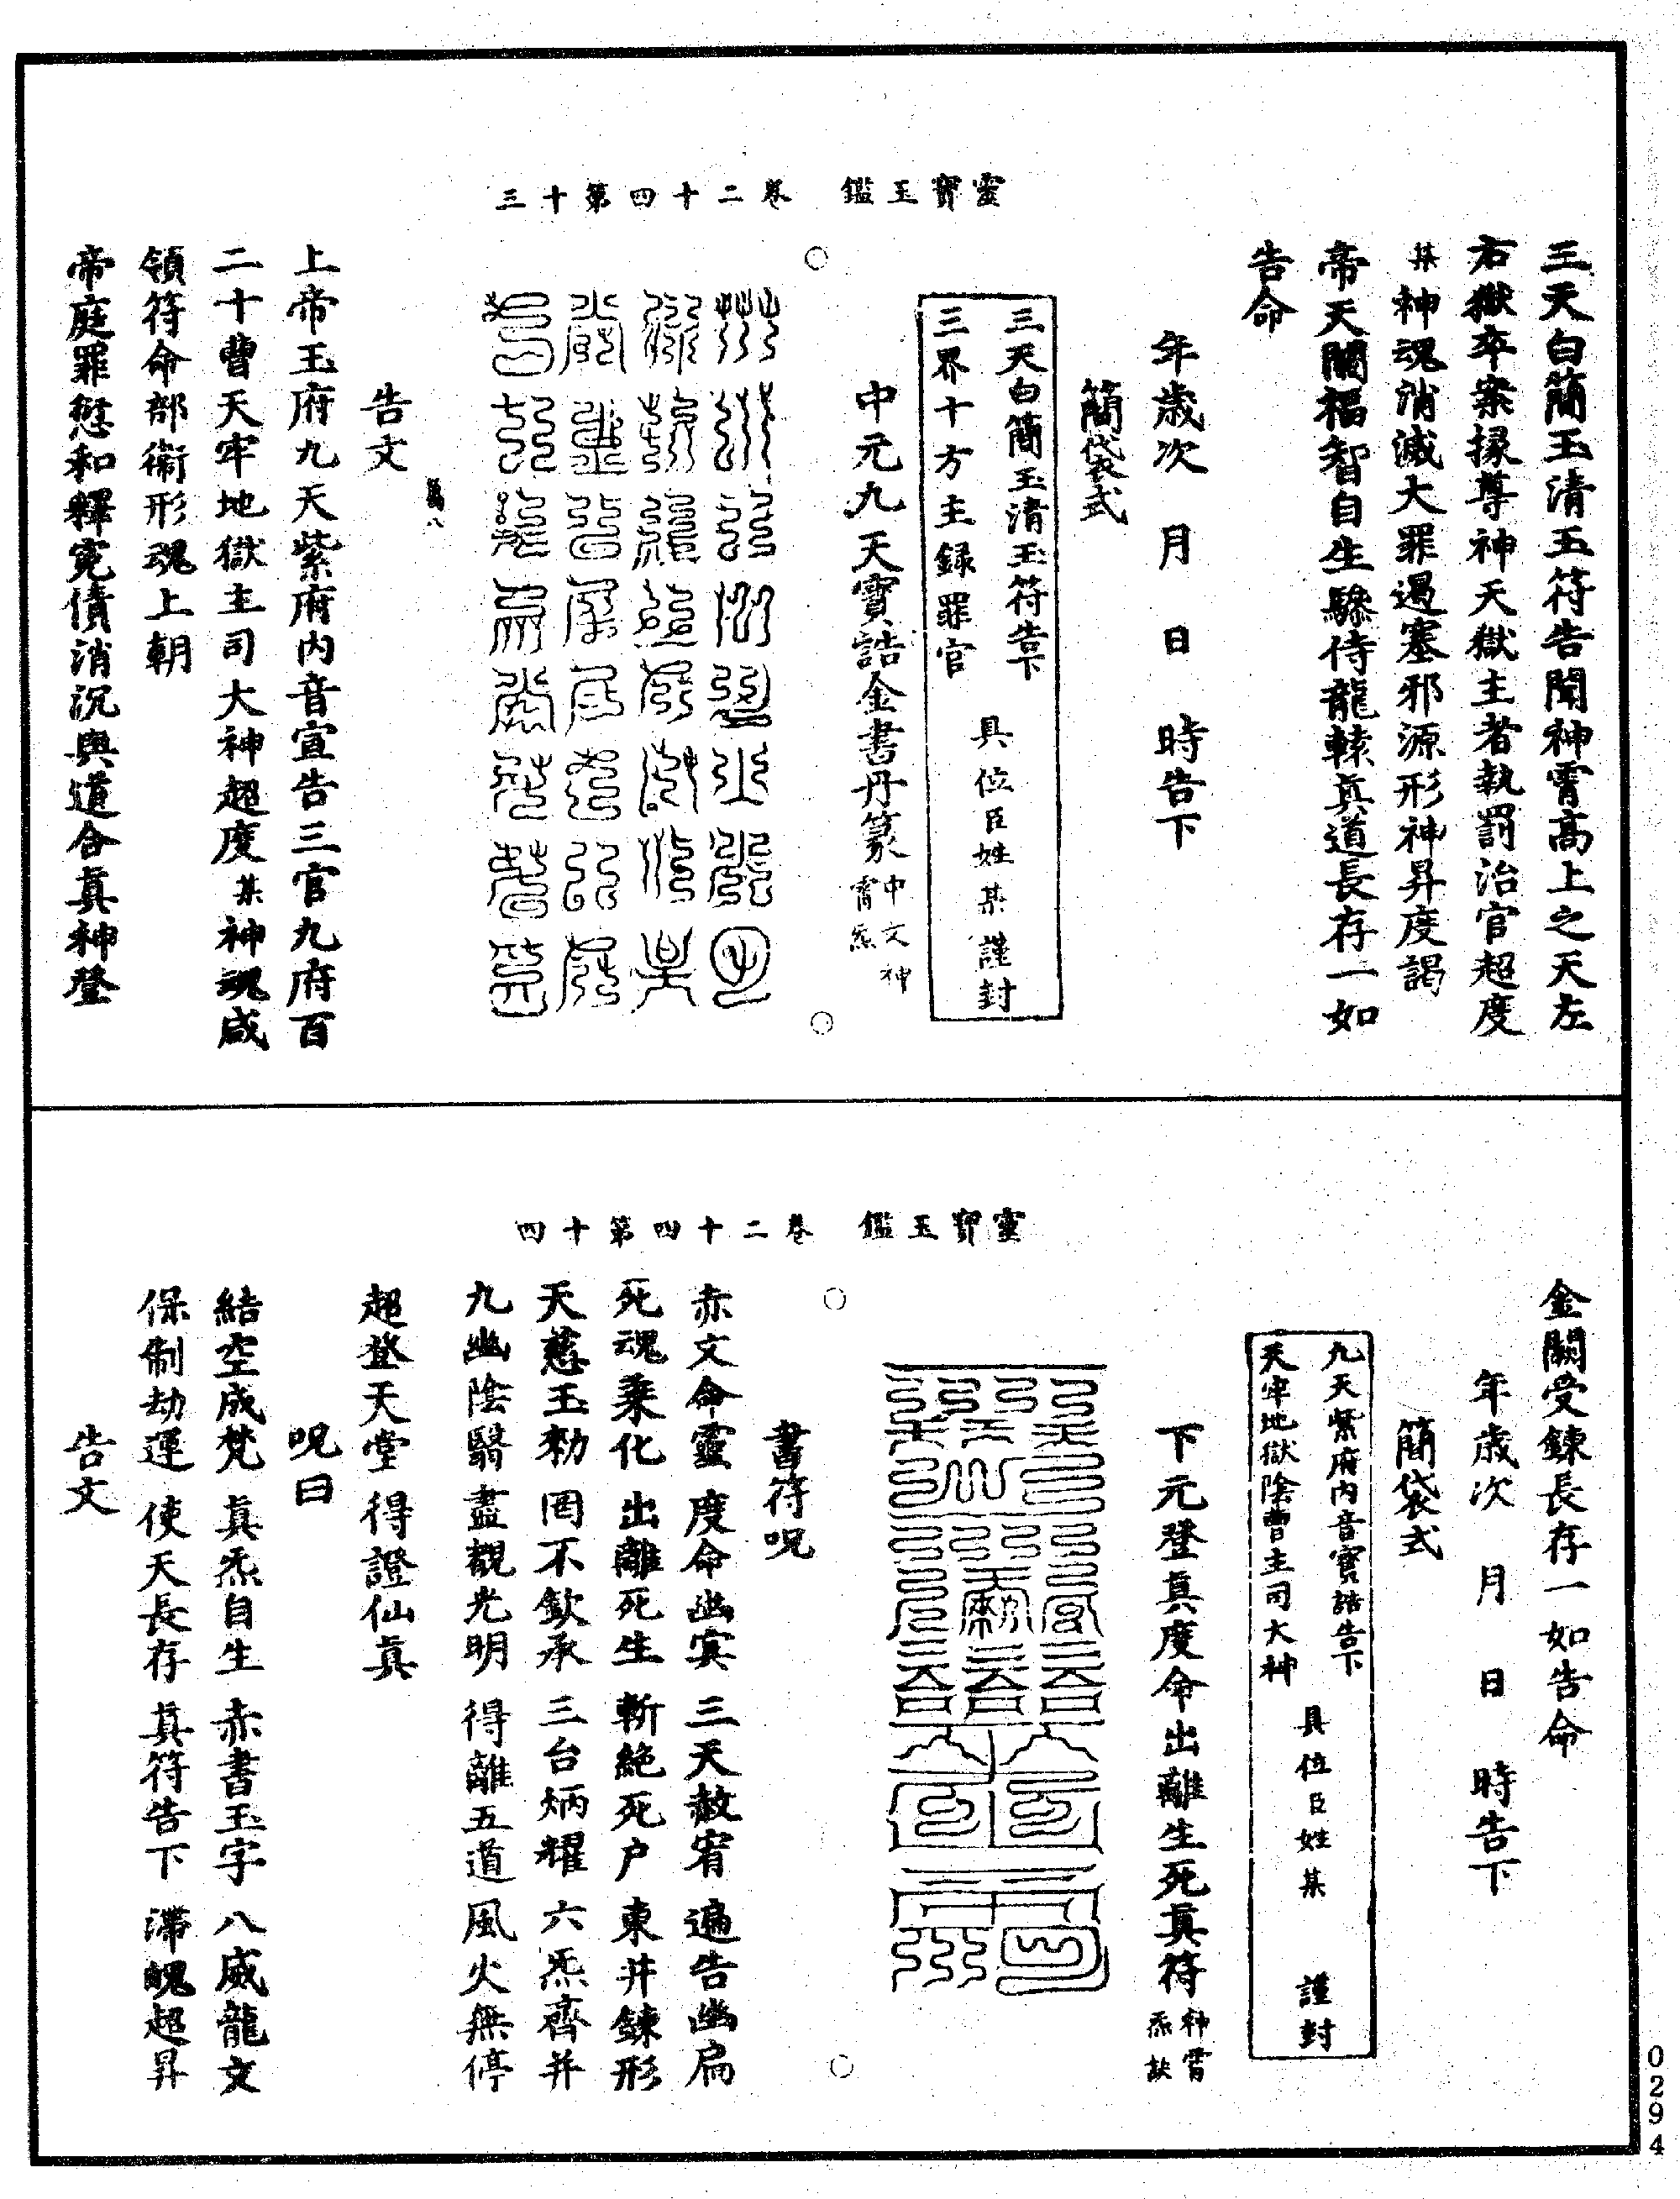 三天白簡玉清五符告聞神霄高上之天左
右獄卒案掾尊神天獄主者執罰治官超度
某神魂消滅大罪過塞邪源形神昇度謁
帝天闕福智自生驂侍龍轅真道長存一如
告命
年歲次　月　日　時告下
簡袋式
三天白簡玉清玉符告下
三界十方主錄罪官
具位臣姓某謹封
中元九天寶誥金書丹篆中文神霄炁
靈寶玉鑑　卷二十四第十三
告文
萬八
上帝玉府九天紫府內音宣告三官九府百
二十曹天牢地獄主司大神超度某神魂咸
領符命部衛形魂上朝
帝庭罪愆和釋冤債消沉與道合真神登
金闕受鍊長存一如告命
年歲次　月　日　時告下
簡袋式
九天紫府內音寶誥告下
天牢地獄陰曹主司大神
具位臣姓某　謹封
下元登真度命出離生死真符神霄炁訣
靈寶玉鑑　卷二十四第十四
書符呪
赤文命靈　度命幽冥　三天赦宥　遍告幽扃
死魂乘化　出離死生　斬絕死戶　東井鍊形
天慈玉勑　罔不欽承　三台炳耀　六炁齊并
九幽陰翳　盡覩光明　得離五道　風火無停
超登天堂　得證仙真
呪曰
結空成梵　真炁自生　赤書玉字　八威龍文
保制劫運　使天長存　真符告下　滯魄超昇
告文
0294